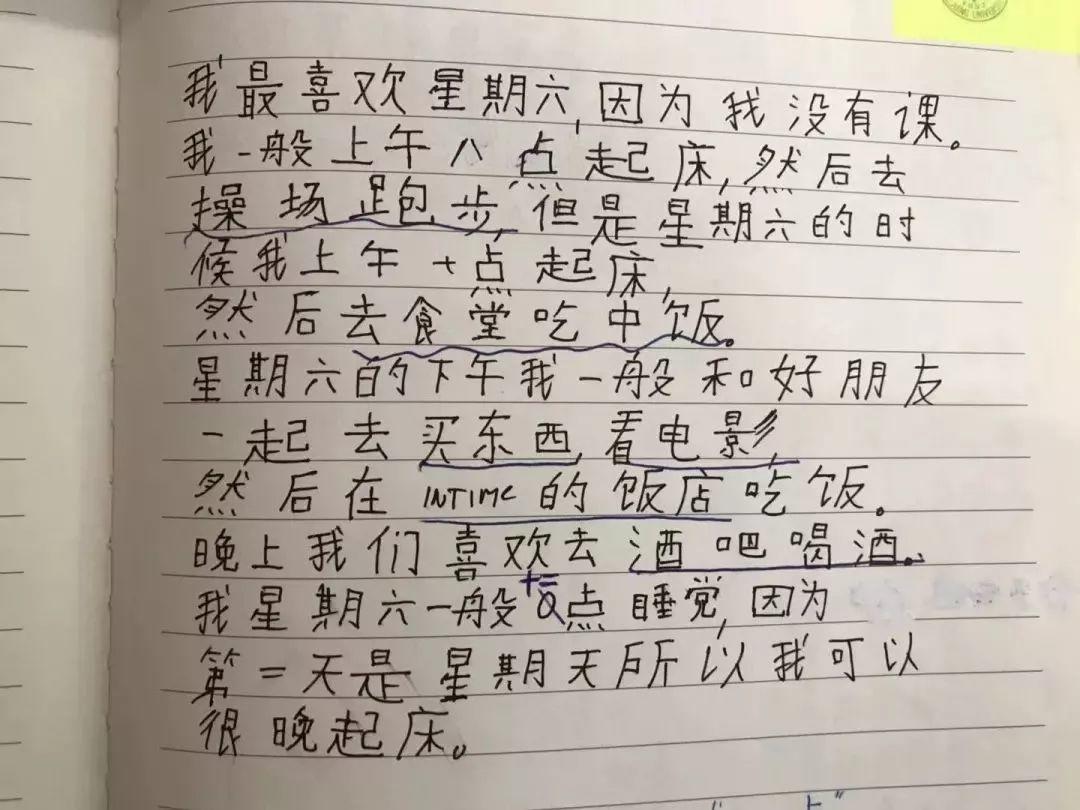 我最喜欢星期六,因为我没有课。
我一般上午八点起床,然后去
操场跑步,但是星期六的时
候我上午十点起床,
然后去食堂吃中饭。
星期六的下午我一般和好朋友
一起去买东西,看电影,
然后在INTIME的饭店吃饭。
晚上我们喜欢去酒吧喝酒。
十二
我星期六一般点睡觉,因为
第二天是星期天所以我可以
很晚起床。